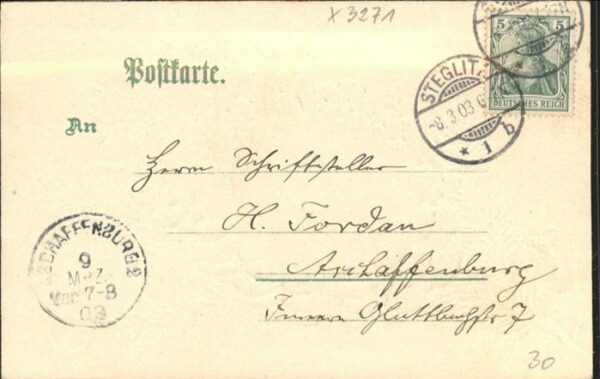 x 3271
5 5
DEUTSCHES REICH
Postkarte.
STEGLITZ
-8.3.03
* 1 b
An
Herrn Schriftsteller
H. Fordan
Aschaffenburg
Innere Glattbachstr 7
ASCHAFFENBURG 2
9
MRZ
Vor 7-8
03
30